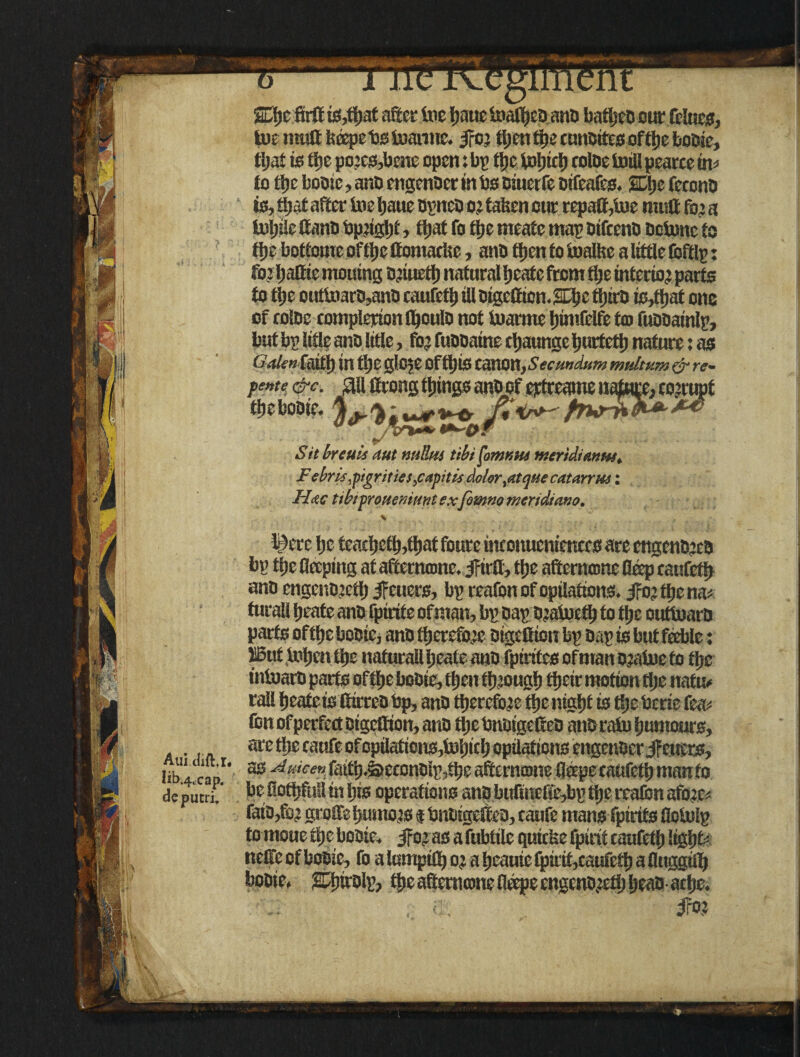 6 The Regiment
The first is, that after we haue washed and bathed our selues,
we must kéepe vs warme. For then the cundites of the bodie,
that is the pores, bene open: by the which colde will pearce in-
to the bodie, and engender in vs diuerse diseases. The second
is, that after we haue dyned or taken our repast, we must for a
while stand vpright, that so the meate may discend downe to
the bottome of the stomacke, and then to walke a little softly:
for hastie mouing driueth natural heate from the interior parts
to the outtward, and causeth ill digestion. The third is, that one
of colde complexion should not warme himselfe too suddainly,
but by litle and litle, for suddaine chaunge hurteth nature: as
Galen saith in the gloze of this canon, Secundum multum & re-
pente &c. All strong things and of extreame nature, corrupt
the bodie.
Sit breuis aut nullus tibi somnus meridianus.
Febris, pigrities, capitis dolor, atque catarrus:
Hæc tibi proueniunt ex somno meridiano.
Here he teacheth, that foure inconueniences are engendred
by the sleeping at afternoone. First, the afternoone sléep causeth
and engendreth Feuers, by reason of opilations. For the na-
turall heate and spirite of man, by day draweth to the outward
parts of the bodie, and therefore digestion by day is but féeble:
But when the naturall heate and spirites of man drawe to the
inward parts of the bodie, then through their motion the natu-
rall heate is stirred vp, and therefore the night is the verie sea-
son of perfect digestion, and the vndigested and raw humours,
are the cause of opilations, which opilations engender Feuers,
Aui. dist. 1.
lib. 4. cap.
de putri.
as Auicen saith. Secondly, the afternoone sléepe causeth man to
be slothfull in his operations and businesse, by the reason afore-
said, for grosse humors & vndigested, cause mans spirits slowly
to moue the bodie. For as a subtile quicke spirit causeth light-
nesse of bodie, so a lumpish or a heauie spirit, causeth a sluggish
bodie. Thirdly, the afternoone sléepe engendreth head-ache.
For